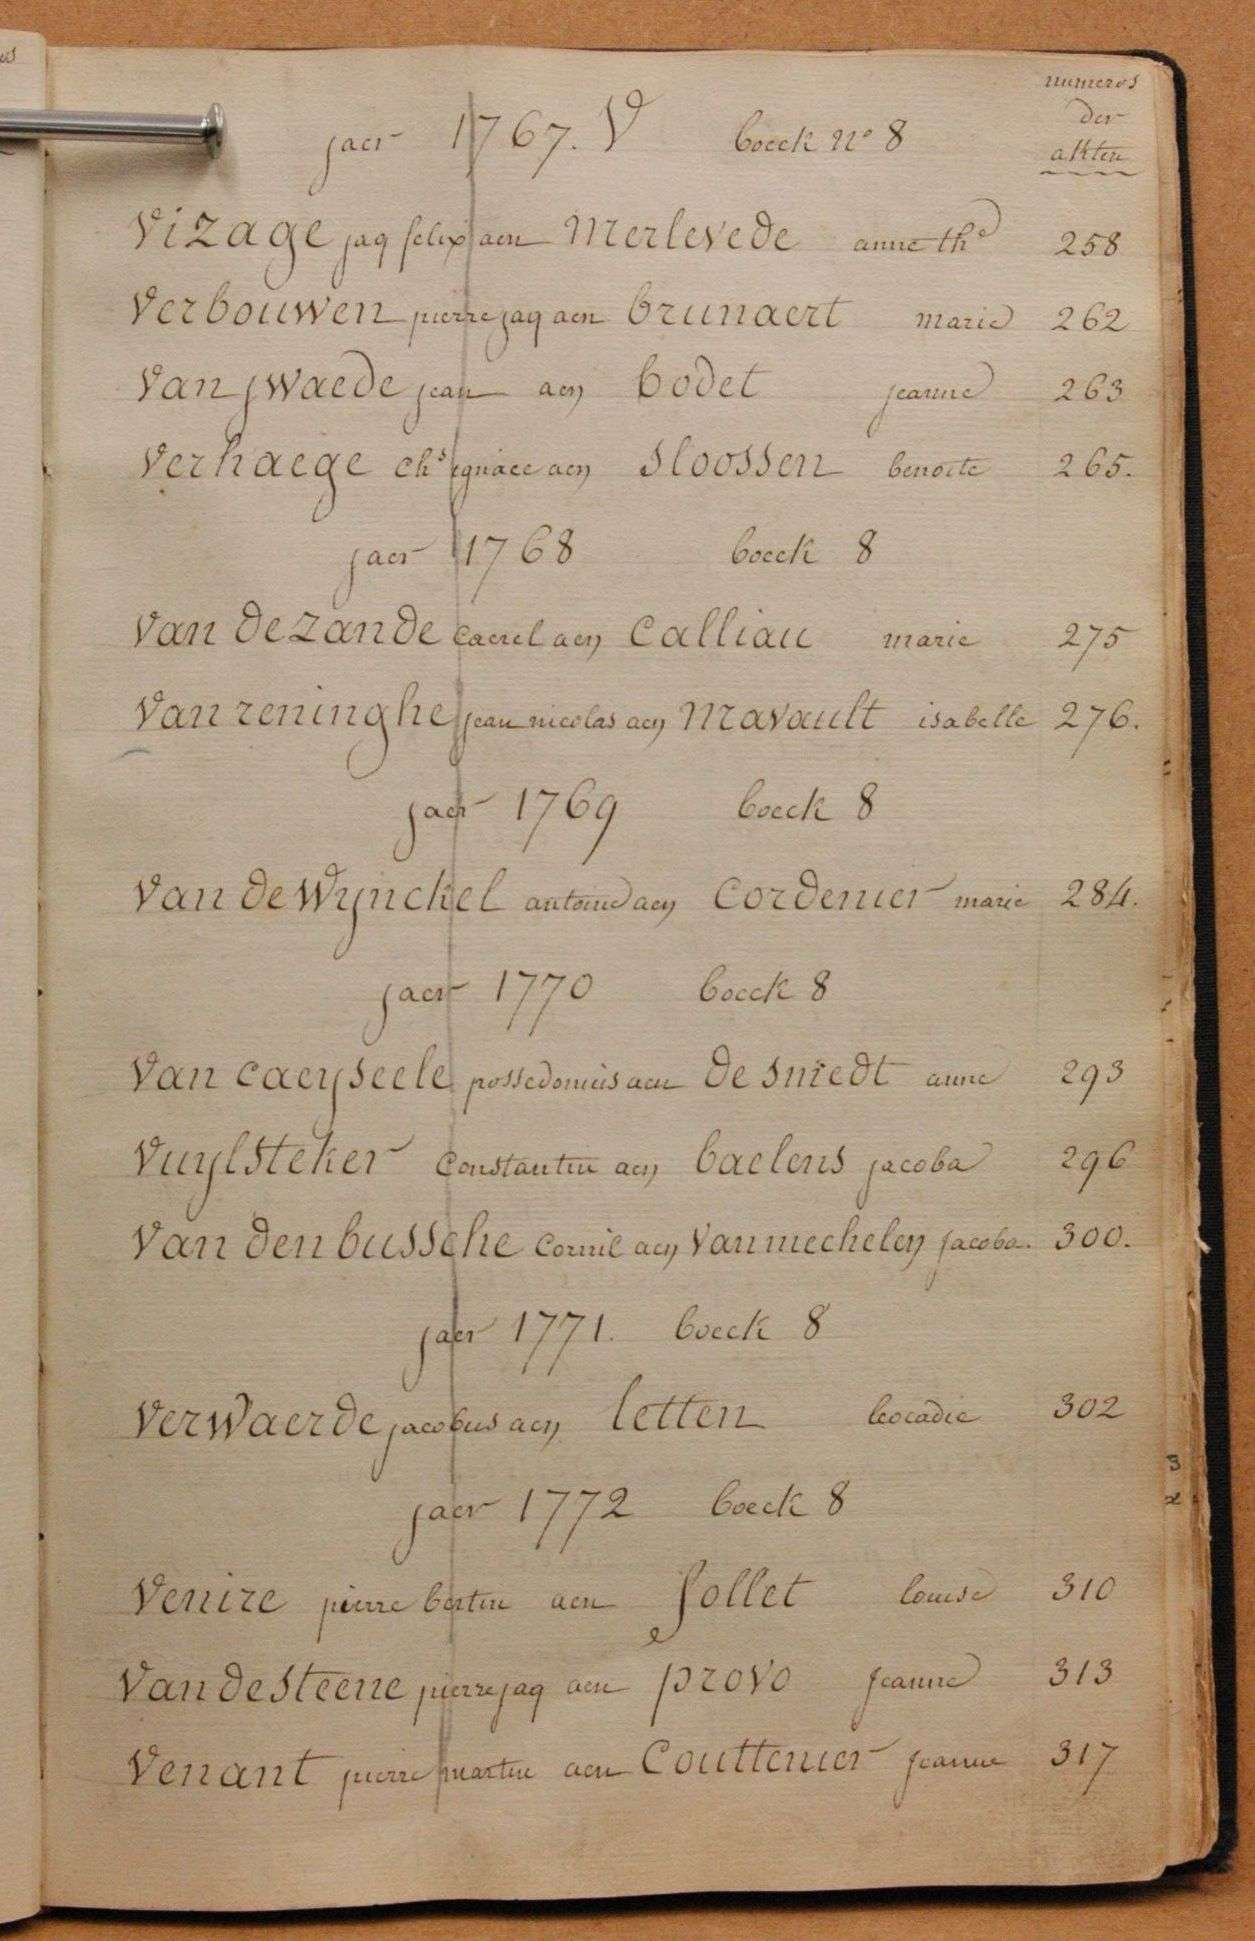 numeros
der
akten
jaer 1767. V boeck n° 8
Vizage jaq felix aen Merlevede anne th.e 258
Verbouwen pierre jaq aen brunaert marie 262
Van jwaede jean aen bodet jeanne 263
Verhaege ch.s ignace aen sloossen benoite 265.
jaer 1768 boeck 8
Van de zande caerel aen Calliau marie 275
Van reninghe jean nicolas aen Mavault isabelle 276.
jaer 1769 boeck 8
Van de Wijnckel antoine aen Cordenier marie 284.
jaer 1770 boeck 8
Van caeyseele possedonius aen de smedt anne 293
Vuylsteker Constantin aen baelens jacoba 296
Van den bussche Cornil aen Van mechelen jacoba. 300.
jaer 1771. boeck 8
Verwaerde jacobus aen letten leocadie 302
jaer 1772 boeck 8
Venire pierre bertin aen follet louise 310
Van de steene pierre jaq aen provo jeanne 313
Venant pierre martin aen Couttenier jeanne 317